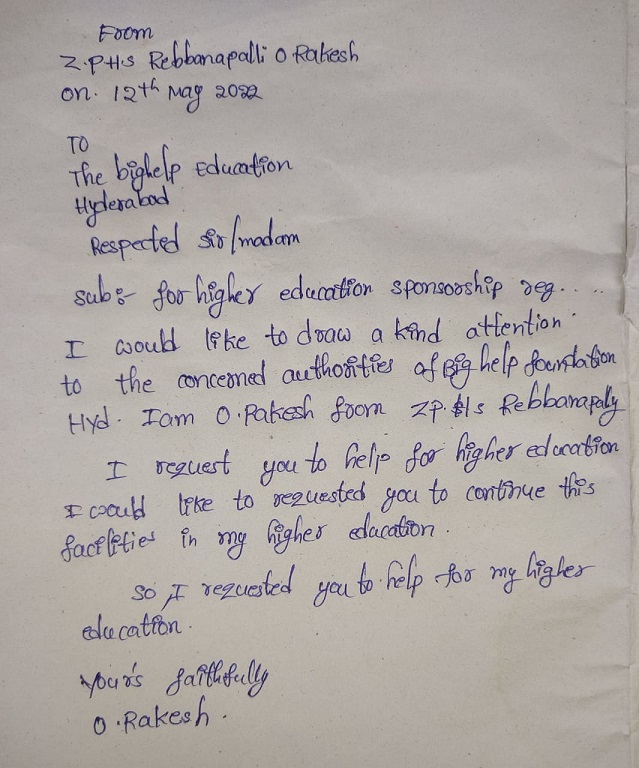 From
Z.P.H.S Rebbanapalli O Rakesh
on. 12th May 2022
TO
The bighelp Education
Hyderabad
Respected sir/madam
sub:- for higher education sponsorship reg.....
I would like to draw a kind attention
to the concerned authorities of Big help foundation
Hyd. Iam O.Rakesh from ZP.H/s Rebbanapally
I request you to help for higher education
I would like to requested you to continue this
facilities in my higher education.
so I requested you to help for my higher
education.
your's faithfully
O.Rakesh.